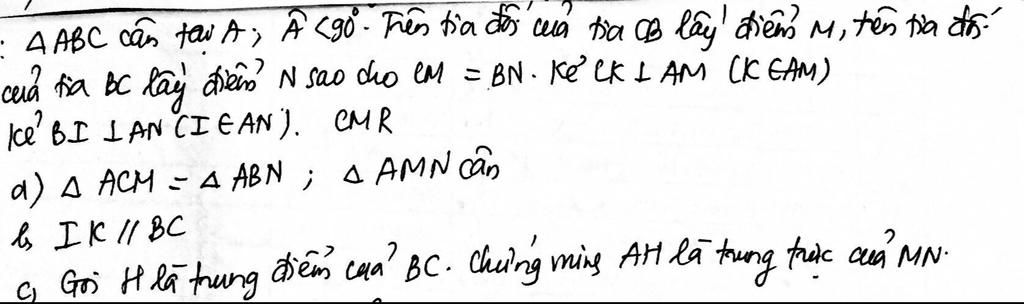 : △ ABC cân tại A; Â < 90°. Trên tia đối của tia CB lấy điểm M, trên tia đối
của tia BC lấy điểm N sao cho CM = BN. Kẻ CK ⊥ AM (K ∈ AM)
Kẻ BI ⊥ AN (I ∈ AN). CMR
a) △ ACM = △ ABN ; △ AMN cân
b, IK // BC
c, Gọi H là trung điểm của BC. Chứng minh AH là trung trực của MN.